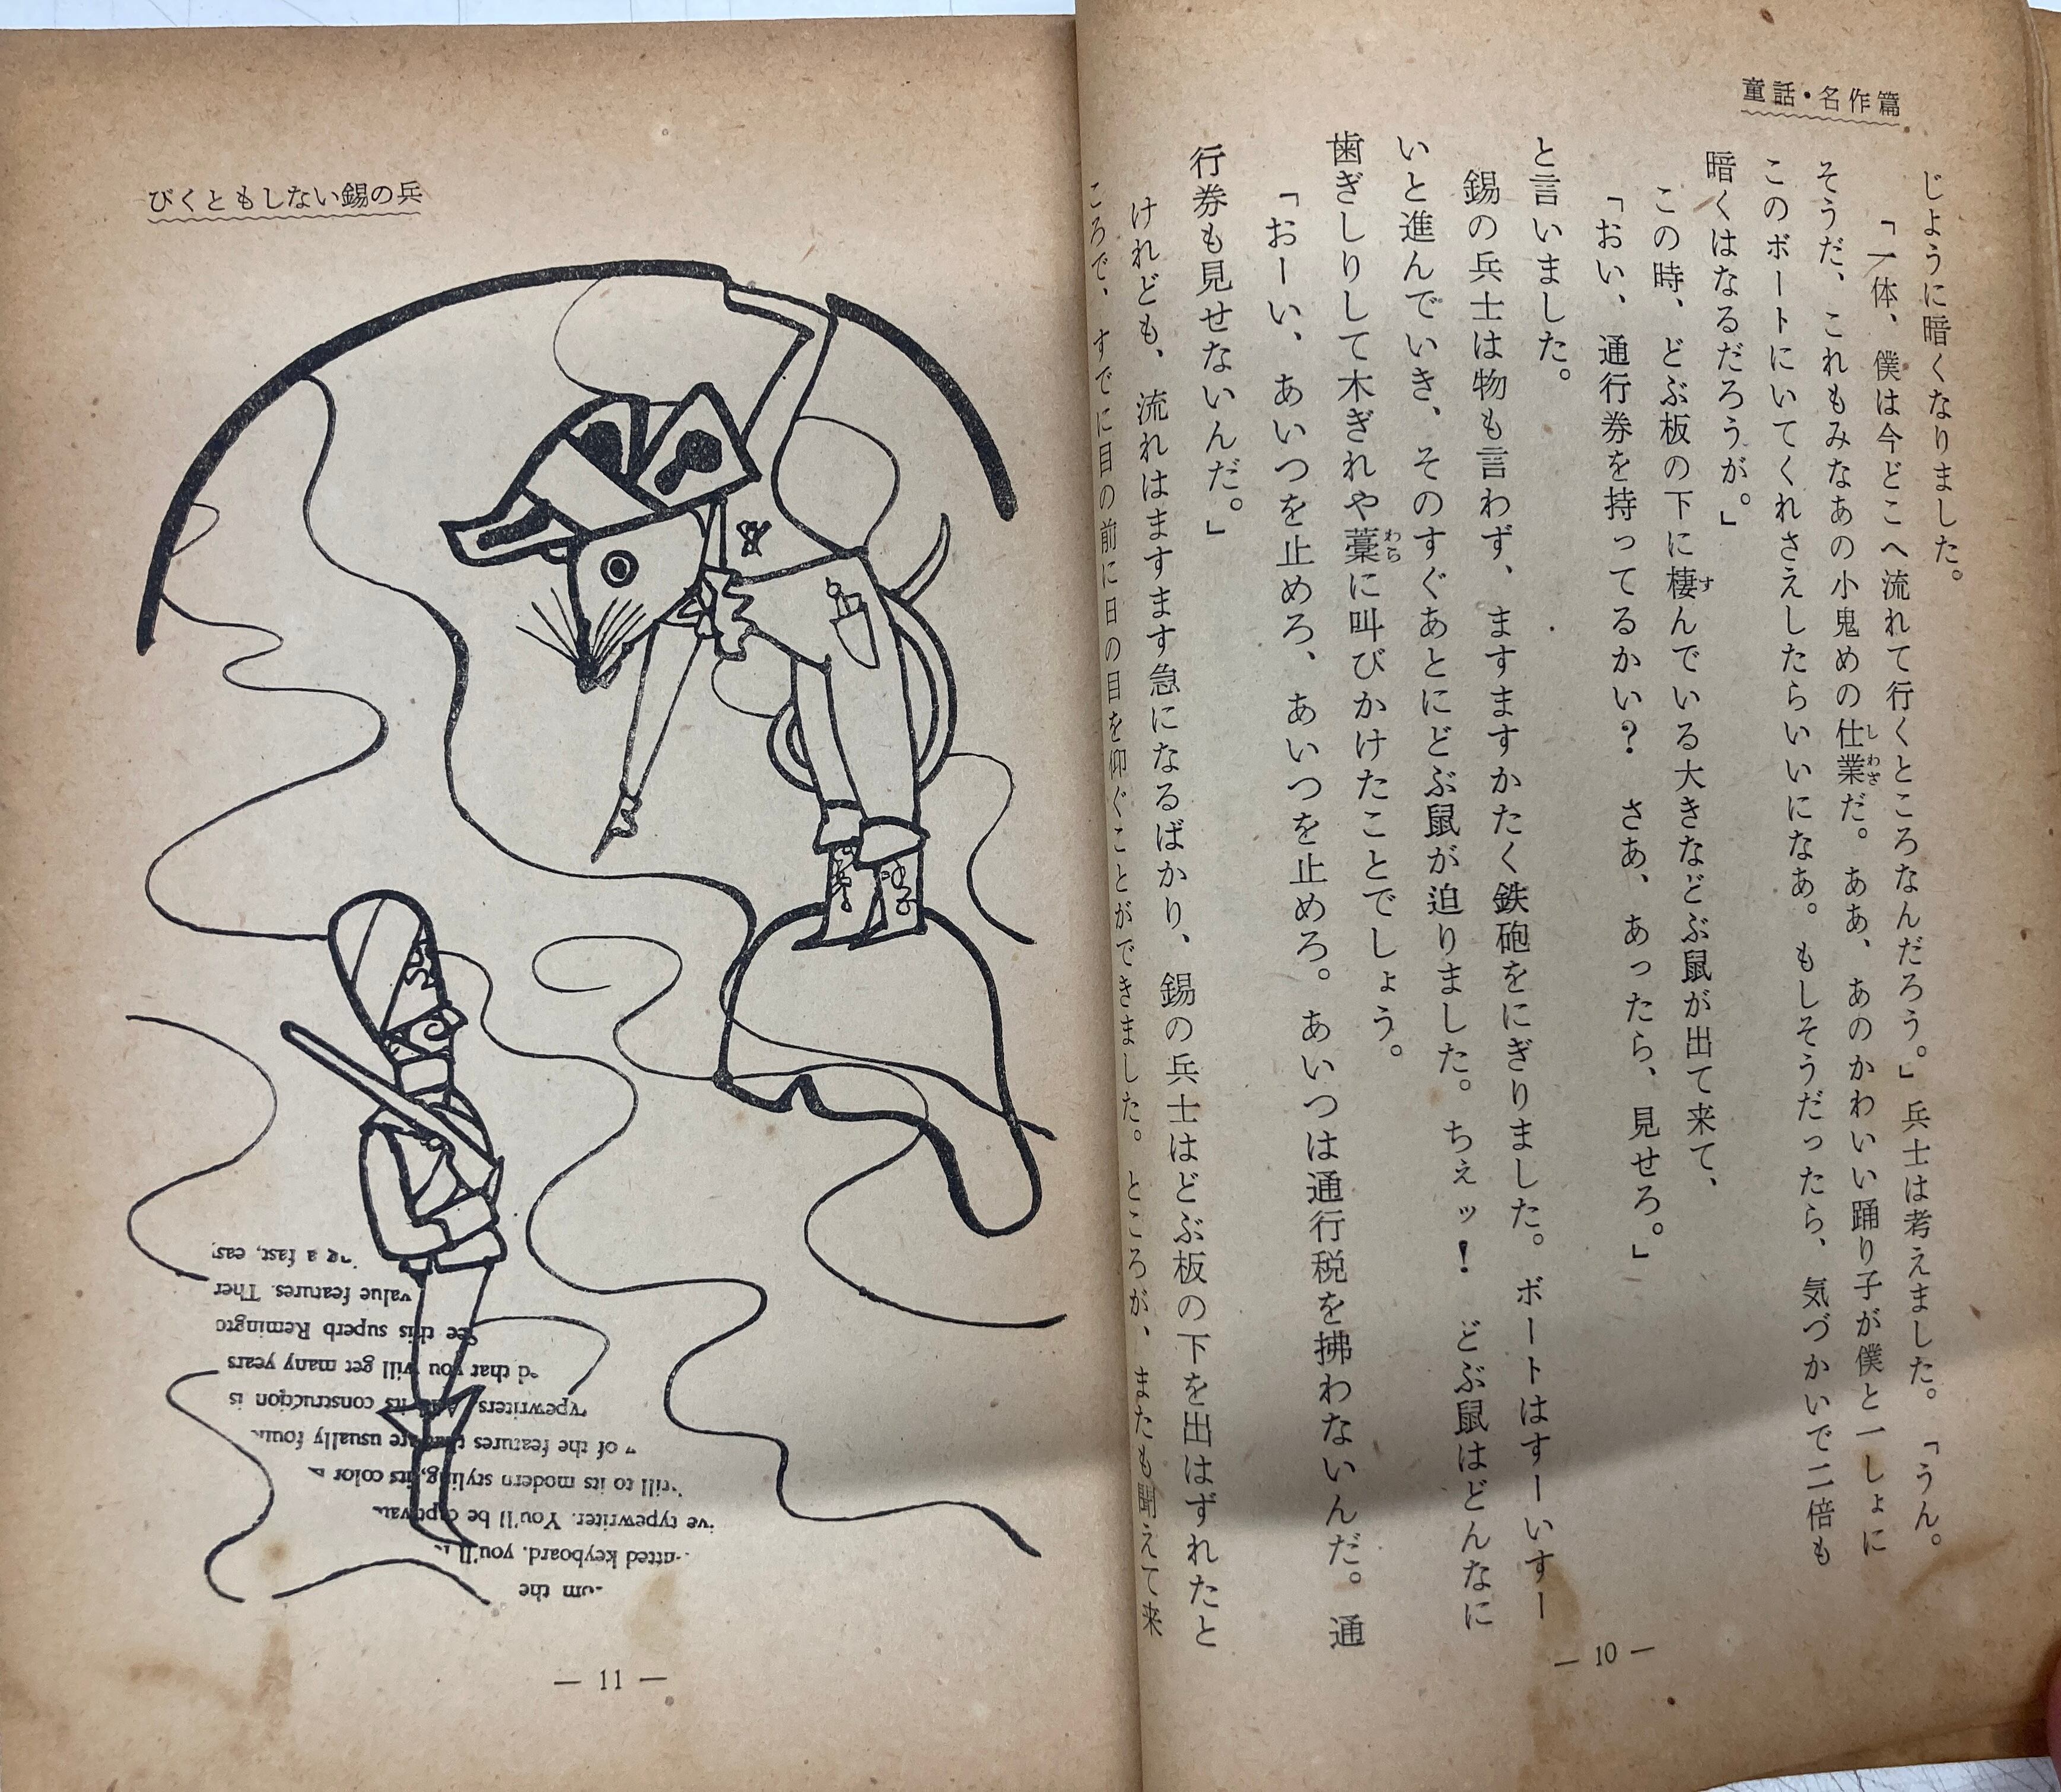 童話・名作篇
じように暗くなりました。
「一体、僕は今どこへ流れて行くところなんだろう。」兵士は考えました。「うん。
そうだ、これもみなあの小鬼めの仕業だ。ああ、あのかわいい踊り子が僕と一しょに
このボートにいてくれさえしたらいいになあ。もしそうだったら、気づかいで二倍も
暗くはなるだろうが。」
この時、どぶ板の下に棲んでいる大きなどぶ鼠が出て来て、
「おい、通行券を持ってるかい？　さあ、あったら、見せろ。」
と言いました。
錫の兵士は物も言わず、ますますかたく鉄砲をにぎりました。ボートはすーいすー
いと進んでいき、そのすぐあとにどぶ鼠が迫りました。ちぇッ！　どぶ鼠はどんなに
歯ぎしりして木ぎれや藁に叫びかけたことでしょう。
「おーい、あいつを止めろ、あいつを止めろ。あいつは通行税を拂わないんだ。通
行券も見せないんだ。」
けれども、流れはますます急になるばかり、錫の兵士はどぶ板の下を出はずれたと
ころで、すでに目の前に日の目を仰ぐことができました。ところが、またも聞えて来
— 10 —
びくともしない錫の兵
om the
itted keyboard. you'll
've typewriter. You'll be captivat
rill to its modern styling, its color
of the features that are usually foun
ypewriters. And its construction is
d that you will get many years
See this superb Remingto
value features. Ther
g a fast, easy
— 11 —